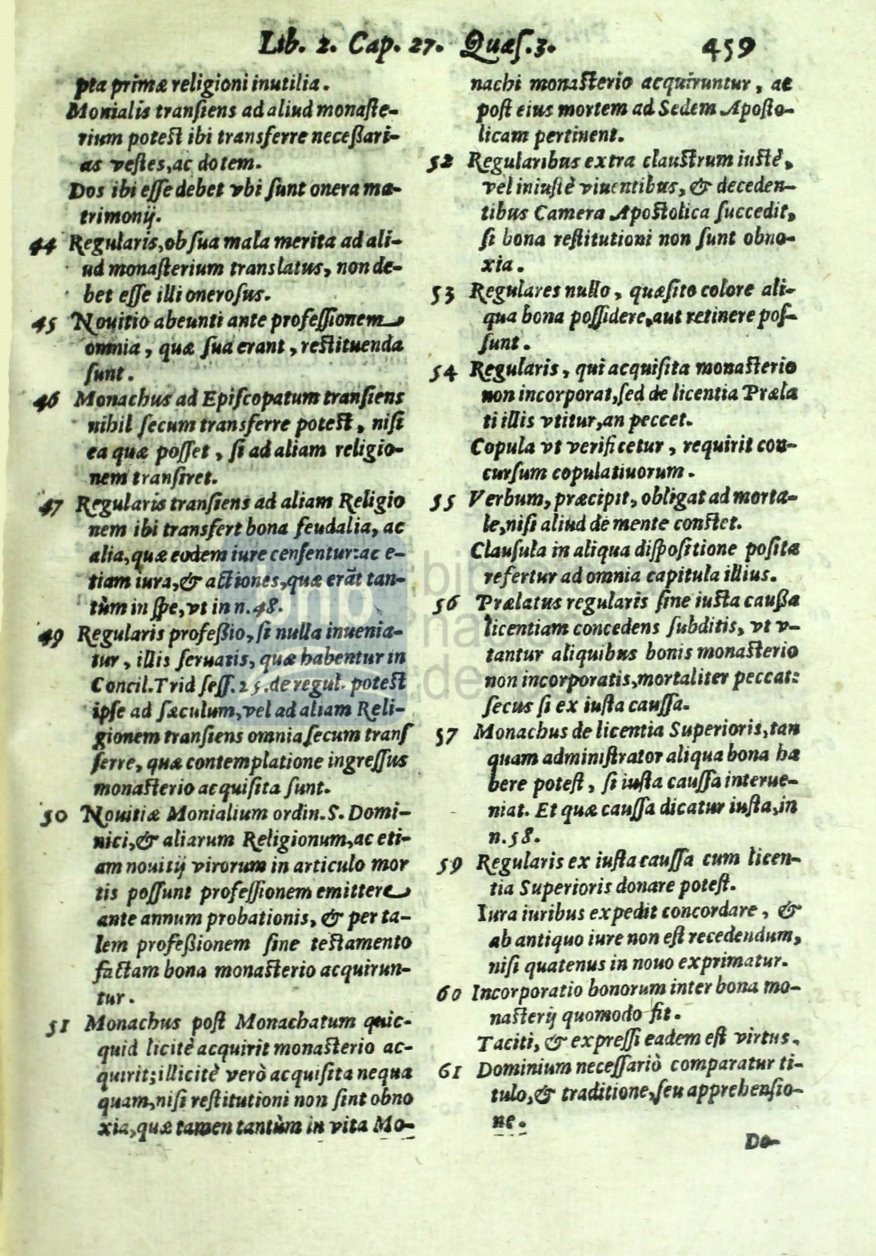 Lib. 2. Cap. 27. Quæſ. 3. 459
pta primæ religioni inutilia.
Monialis tranſiens ad aliud monaſte-
rium poteſt ibi transferre neceßari-
as veſtes, ac dotem.
Dos ibi eſſe debet vbi ſunt onera ma-
trimonij.
44 Regularis, ob ſua mala merita ad ali-
ud monaſterium translatus, non de-
bet eſſe illi oneroſus.
45 Nouitio abeunti ante profeſſionem
omnia, quæ ſua erant, reſtituenda
ſunt.
46 Monachus ad Epiſcopatum tranſiens
nihil ſecum transferre poteſt, niſi
ea quæ poſſet, ſi ad aliam religio-
nem tranſiret.
47 Regularis tranſiens ad aliam Religio
nem ibi transfert bona feudalia, ac
alia, quæ eodem iure cenſentur: ac e-
tiam iura, & actiones, quæ erãt tan-
tùm in ſpe, vt in n. 48.
49 Regularis profeßio, ſi nulla inuenia-
tur, illis ſeruatis, quæ habentur in
Concil. Trid ſeſſ. 25. de regul. poteſt
ipſe ad ſæculum, vel ad aliam Reli-
gionem tranſiens omnia ſecum tranſ
ferre, quæ contemplatione ingreſſus
monaſterio acquiſita ſunt.
50 Nouitiæ Monialium ordin. S. Domi-
nici, & aliarum Religionum, ac eti-
am nouitij virorum in articulo mor
tis poſſunt profeſſionem emittere
ante annum probationis, & per ta-
lem profeßionem ſine teſtamento
factam bona monaſterio acquirun-
tur.
51 Monachus poſt Monachatum quic-
quid licitè acquirit monaſterio ac-
quirit; illicitè verò acquiſita nequa
quam, niſi reſtitutioni non ſint obno
xia, quæ tamen tantùm in vita Mo-
nachi monaſterio acquiruntur, ac
poſt eius mortem ad Sedem Apoſto-
licam pertinent.
52 Regularibus extra clauſtrum iuſtè,
vel iniuſtè viuentibus, & deceden-
tibus Camera Apoſtolica ſuccedit,
ſi bona reſtitutioni non ſunt obno-
xia.
53 Regulares nullo, quæſito colore ali-
qua bona poſſidere, aut retinere poſ-
ſunt.
54 Regularis, qui acquiſita monaſterio
non incorporat, ſed de licentia Præla
ti illis vtitur, an peccet.
Copula vt verificetur, requirit con-
curſum copulatiuorum.
55 Verbum, præcipit, obligat ad morta-
le, niſi aliud de mente conſtet.
Clauſula in aliqua diſpoſitione poſita
refertur ad omnia capitula illius.
56 Prælatus regularis ſine iuſta cauſſa
licentiam concedens ſubditis, vt v-
tantur aliquibus bonis monaſterio
non incorporatis, mortaliter peccat:
ſecus ſi ex iuſta cauſſa.
57 Monachus de licentia Superioris, tan
quam adminiſtrator aliqua bona ha
bere poteſt, ſi iuſta cauſſa interue-
niat. Et quæ cauſſa dicatur iuſta, in
n. 58.
59 Regularis ex iuſta cauſſa cum licen-
tia Superioris donare poteſt.
Iura iuribus expedit concordare, &
ab antiquo iure non eſt recedendum,
niſi quatenus in nouo exprimatur.
60 Incorporatio bonorum inter bona mo-
naſterij quomodo fit.
Taciti, & expreſſi eadem eſt virtus.
61 Dominium neceſſariò comparatur ti-
tulo, & traditione, ſeu apprehenſio-
ne.
Do-